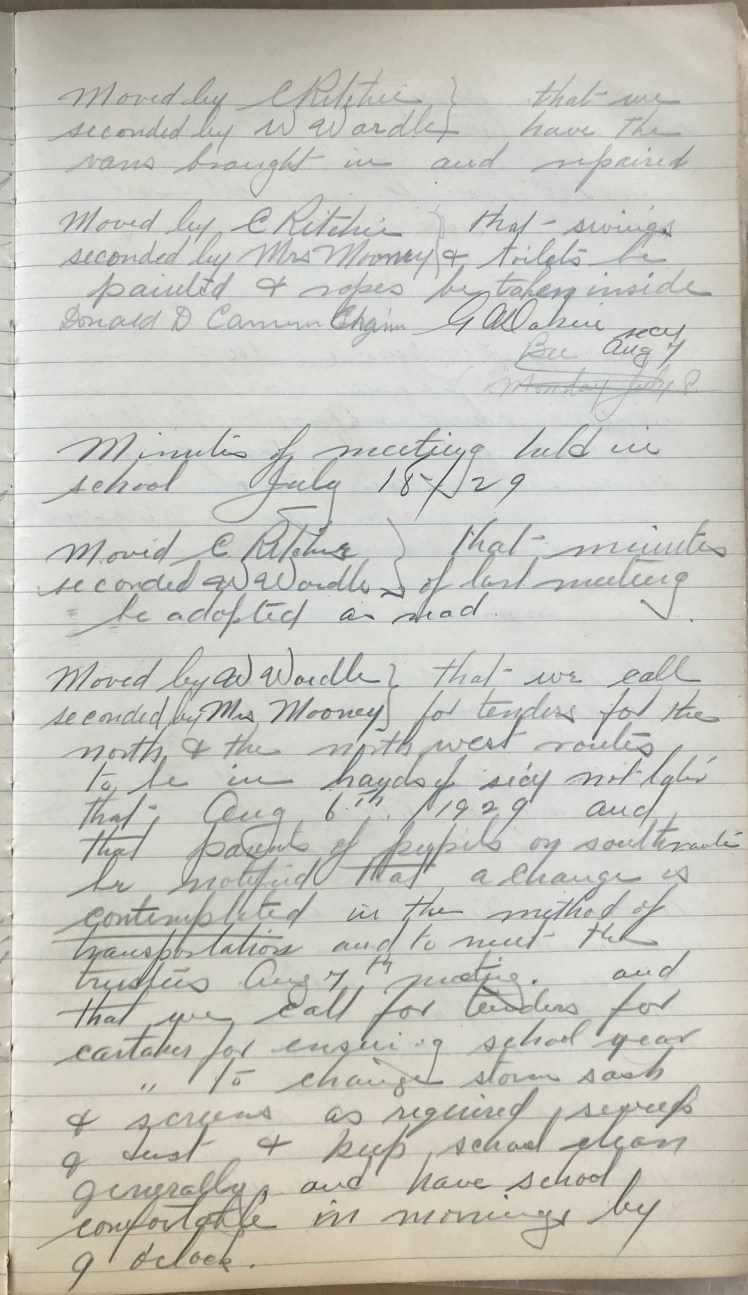 Moved by C Ritchie } that we
seconded by W Wardle } have the
vans brought in and repaired
Moved by C Ritchie } that swings
seconded by Mrs Mooney } & toilets be
painted & ropes be taken inside
Donald D Chairm G A Dakin
secy
Aug 7
Monday July 8
Minutes of meeting held in
school July 18/29
Movid C Ritchie } that minutes
seconded W Wardle } of last meeting
be adopted as read.
Moved by W Wardle } that we call
seconded by Mrs Mooney } for tenders for the
north & the north west routes
to be in hands of secy not later
that Aug 6th. /1929 and
that parents of pupils on south route
be notified that a change is
contemplated in the method of
transportation and to meet the
trustees Aug 7th meeting. and
that we call for tenders for
cartaker for ensuing school year
" to change storm sash
& screens as required, sweep
& dust & keep school clean
generally, and have school
comfortable in mornings by
9 o'clock.